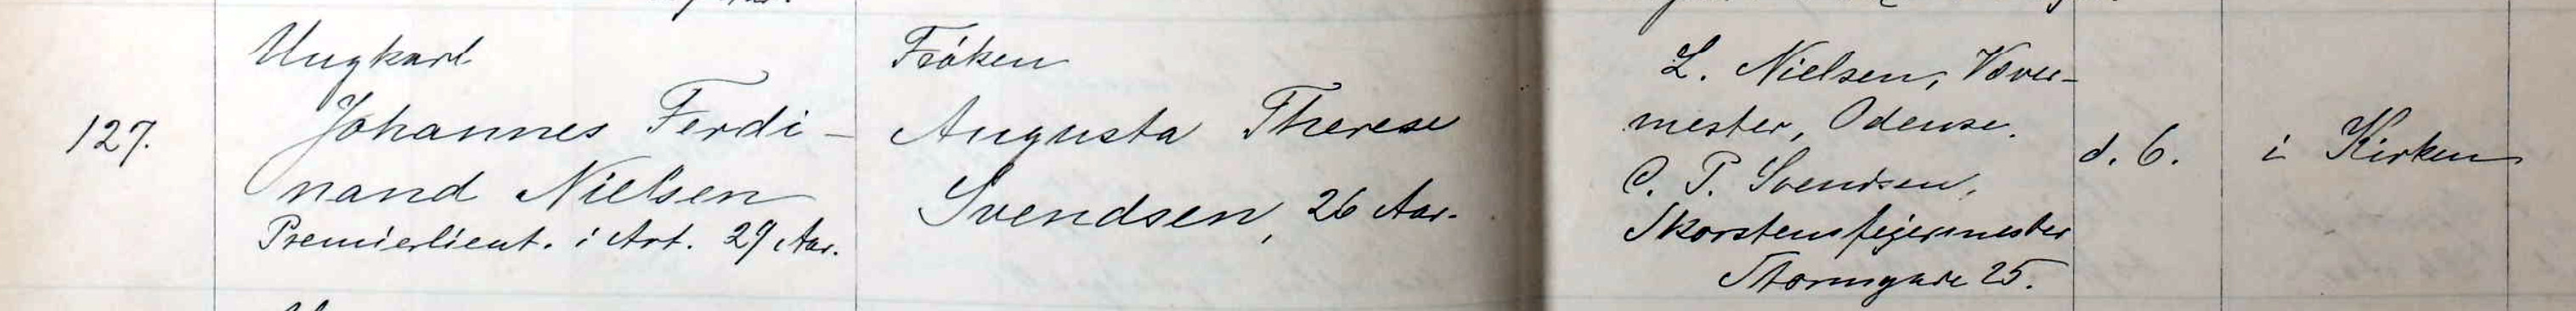 127.
Ungkarl
Johannes Ferdi-
nand Nielsen
Premierlieut. i Art. 29 Aar.
Frøken
Augusta Therese
Svendsen, 26 Aar.
L. Nielsen, Væver-
mester, Odense.
C. P. Svendsen,
Skorstensfejermester
Stormgade 25.
d. 6.
i Kirken